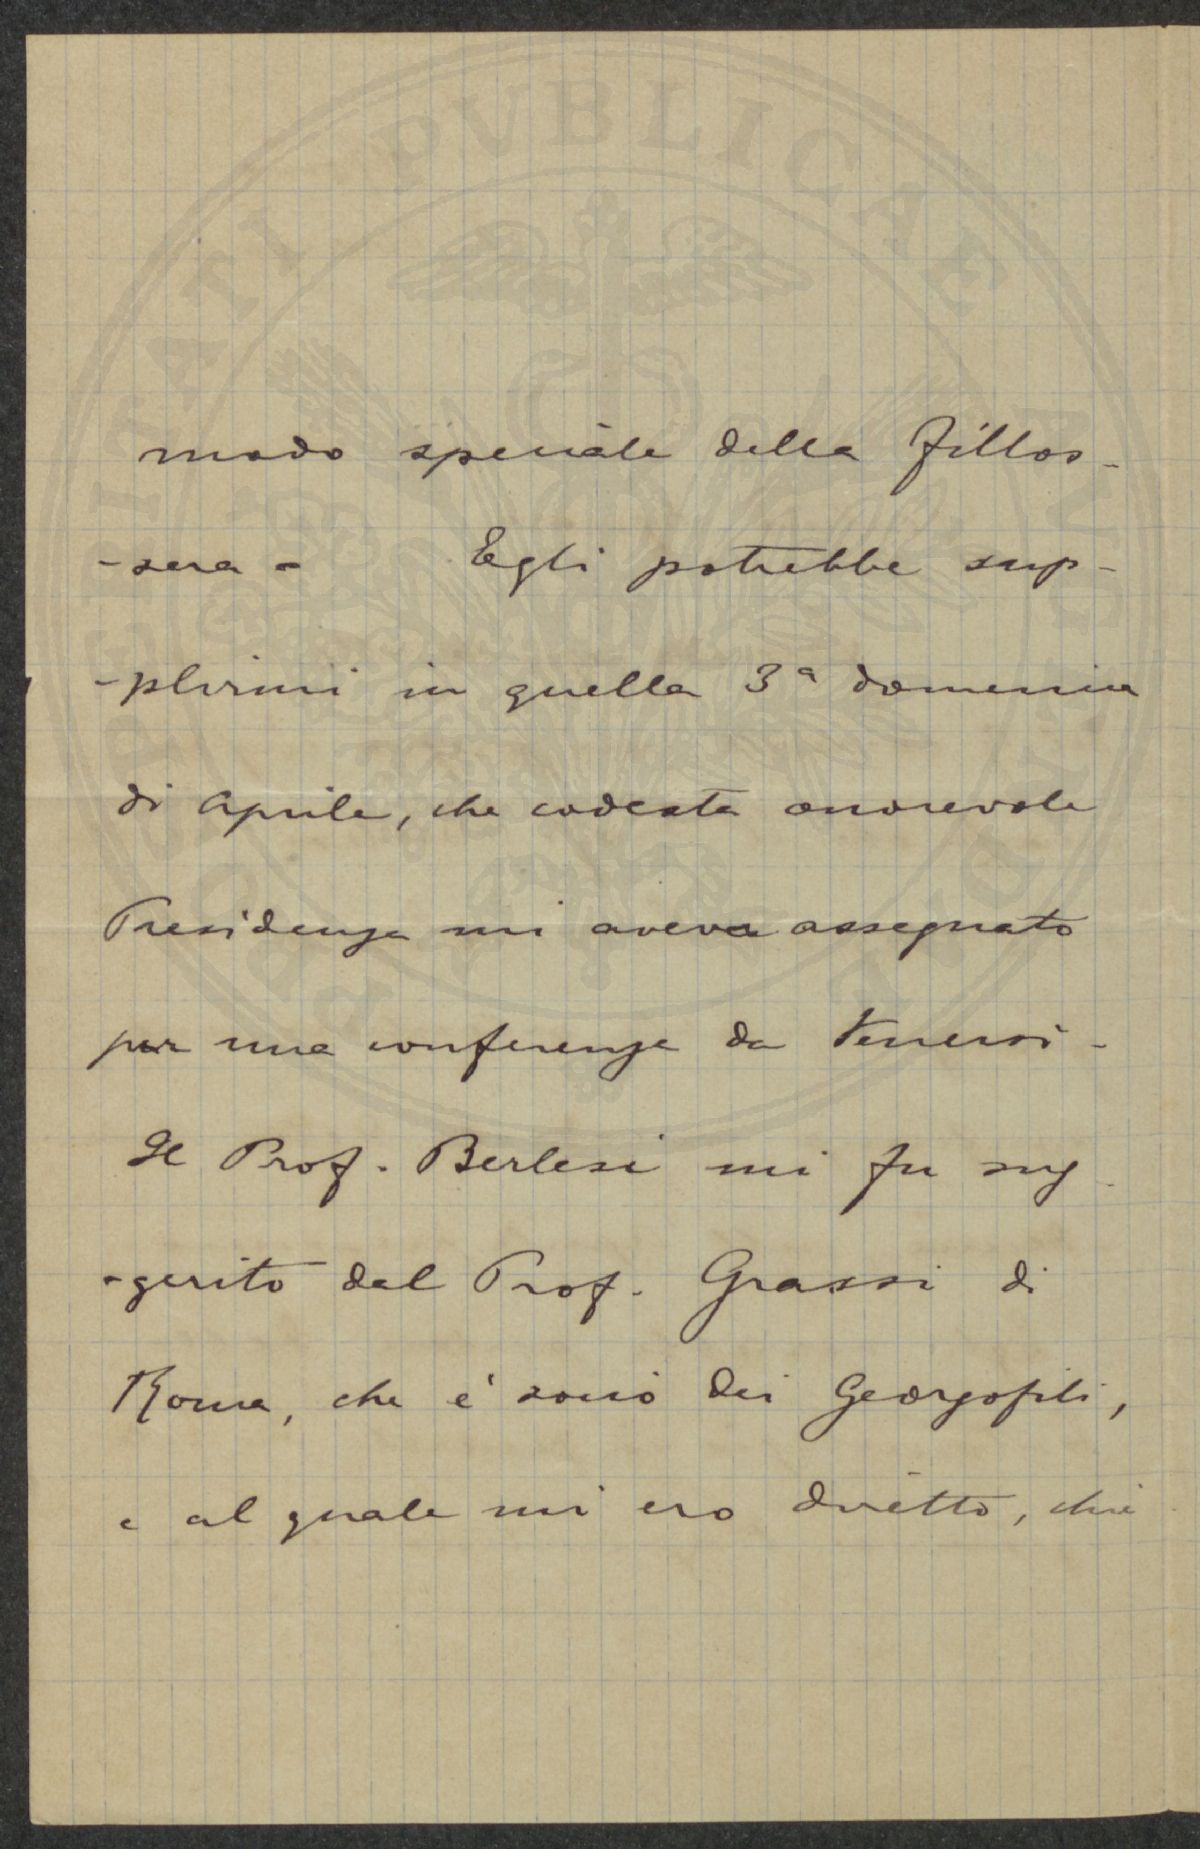 modo speciale della Fillos-
-sera - Egli potrebbe sup-
-plirmi in quella 3ª domenica
di Aprile, che codesta onorevole
Presidenza mi aveva assegnato
per una conferenza da tenersi -
Il Prof. Berlesi mi fu sug
-gerito dal Prof. Grassi di
Roma, che é socio dei Georgofili,
e al quale mi ero diretto,
PVBLICAE